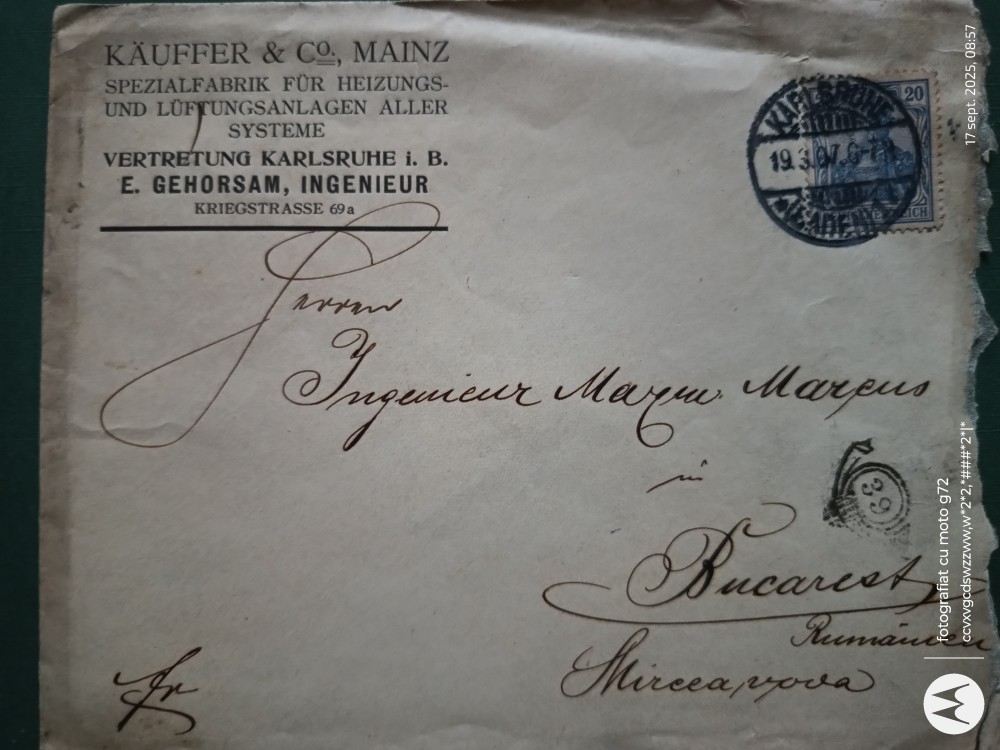 KÄUFFER & Co., MAINZ
SPEZIALFABRIK FÜR HEIZUNGS-
UND LÜFTUNGSANLAGEN ALLER
SYSTEME
VERTRETUNG KARLSRUHE i. B.
E. GEHORSAM, INGENIEUR
KRIEGSTRASSE 69a
20
KARLSRUHE
19.3.07. 6-7
(BADEN) 1
Herren
Ingenieur Marcus
in
39
Bucarest
Rumänien
Mircea voda
fr
17 sept. 2025, 08:57
fotografiat cu moto g72
ccvxvgcdswzzww,w*2*2,*###*2*l*